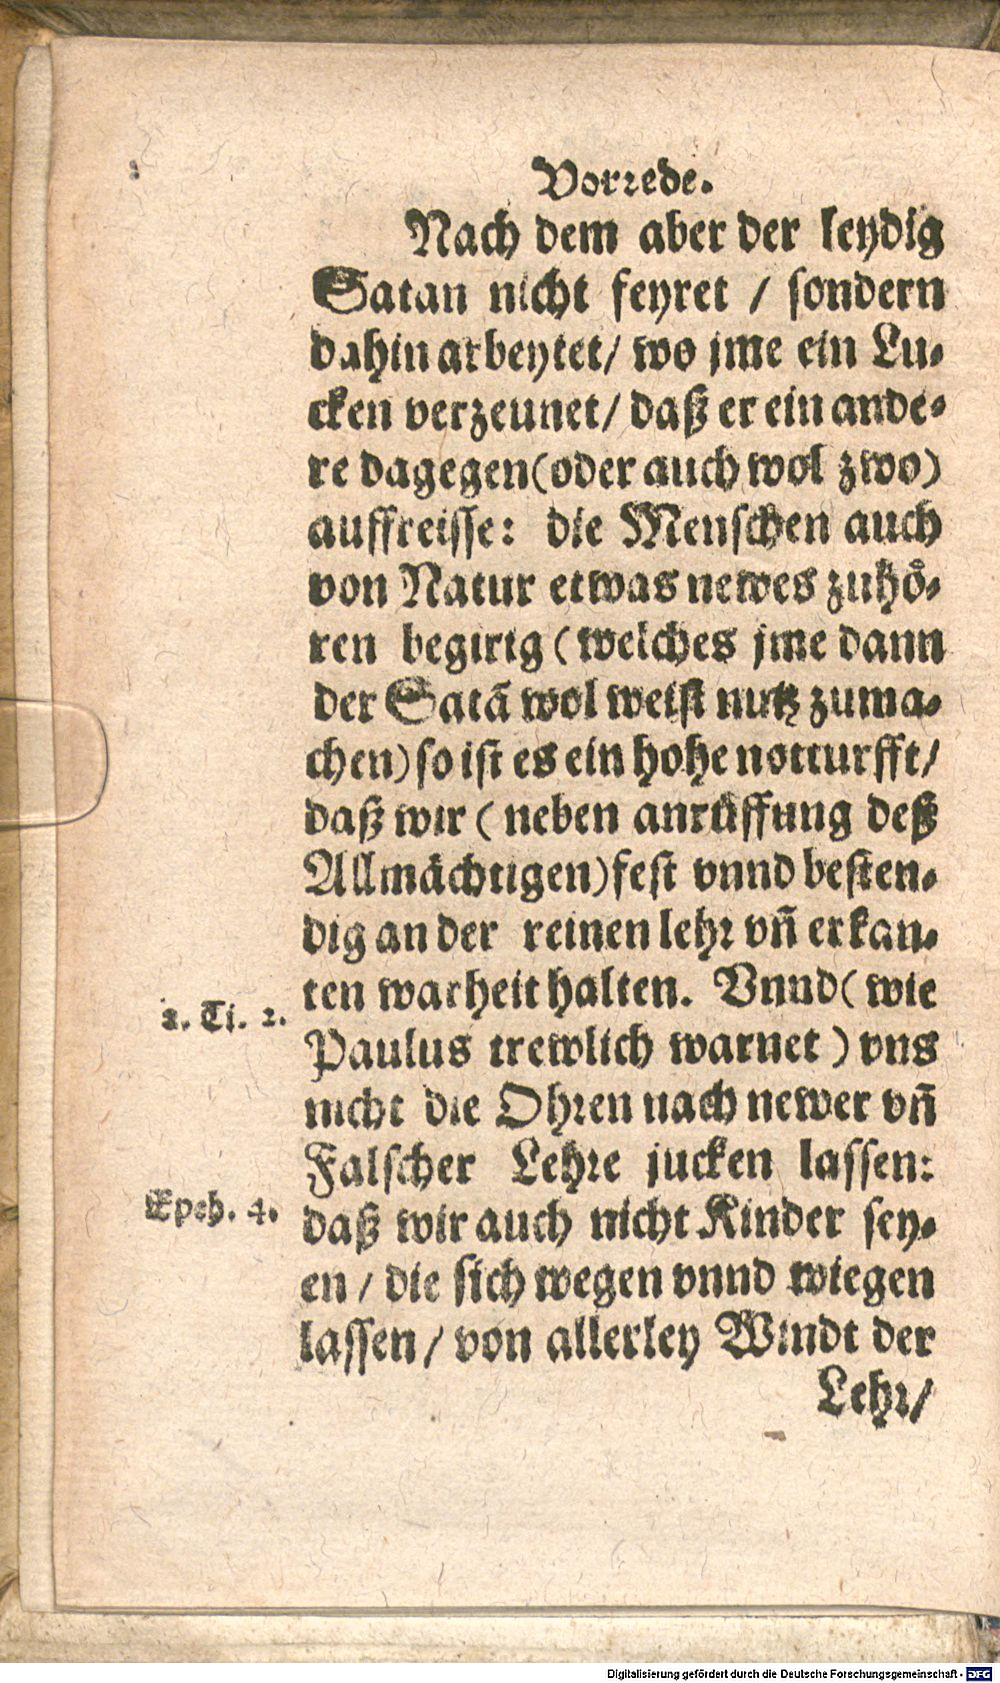 Vorrede.
Nach dem aber der leydig
Satan nicht feyret / sondern
dahin arbeytet/ wo jme ein Lu-
cken verzeunet/ daß er ein ande-
re dagegen(oder auch wol zwo)
auffreisse: die Menschen auch
von Natur etwas newes zuhö-
ren begirig (welches jme dann
der Satã wol weist nutz zuma-
chen)so ist es ein hohe notturfft/
daß wir ( neben anrüffung deß
Allmächtigen)fest vnnd besten-
dig an der reinen lehr vñ erkan-
ten warheit halten. Vnnd( wie
2. Ti. 2.
Paulus trewlich warnet ) vns
nicht die Ohren nach newer vñ
Falscher Lehre jucken lassen:
Epeh. 4.
daß wir auch nicht Kinder sey-
en / die sich wegen vnnd wiegen
lassen / von allerley Windt der
Lehr/
Digitalisierung gefördert durch die Deutsche Forschungsgemeinschaft - DFG